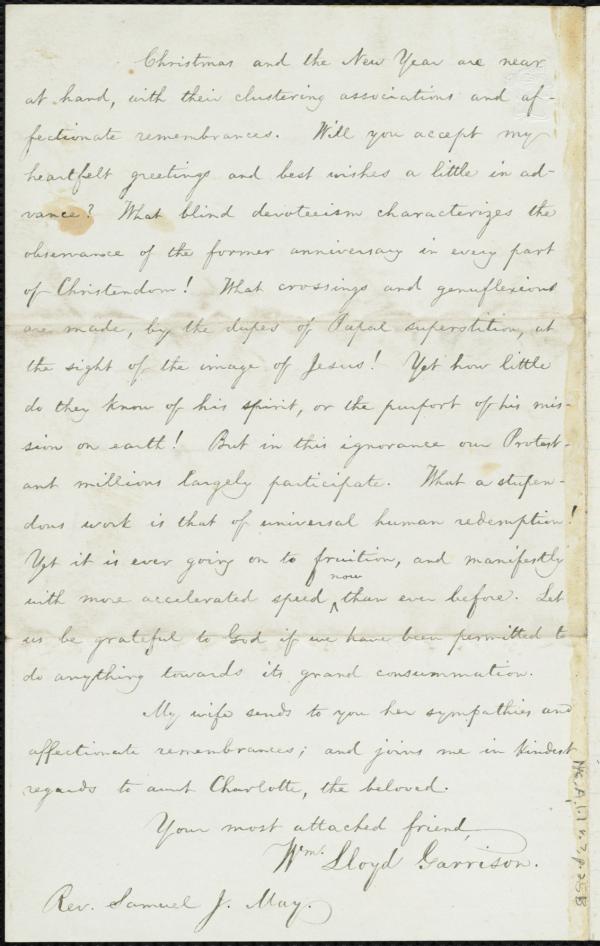 Christmas and the New Year are near
at hand, with their clustering associations and af-
fectionate remembrances. Will you accept my
heartfelt greetings and best wishes a little in ad-
vance? What blind devoteeism characterizes the
observance of the former anniversary in every part
of Christendom! What crossings and genuflexions
are made, by the dupes of Papal superstition, at
the sight of the image of Jesus! Yet how little
do they know of his spirit, or the purport of his mis-
sion on earth! But in this ignorance our Protest-
ant millions largely participate. What a stupen-
dous work is that of universal human redemption!
Yet it is ever going on to fruition, and manifestly
with more accelerated speed now than ever before. Let
us be grateful to God if we have been permitted to
do anything towards its grand consummation.
My wife sends to you her sympathies and
affectionate remembrances; and joins me in kindest
regards to aunt Charlotte, the beloved.
Your most attached friend,
Wm. Lloyd Garrison.
Rev. Samuel J. May.
Ms. A. 1.1 v. 7 p. 25B